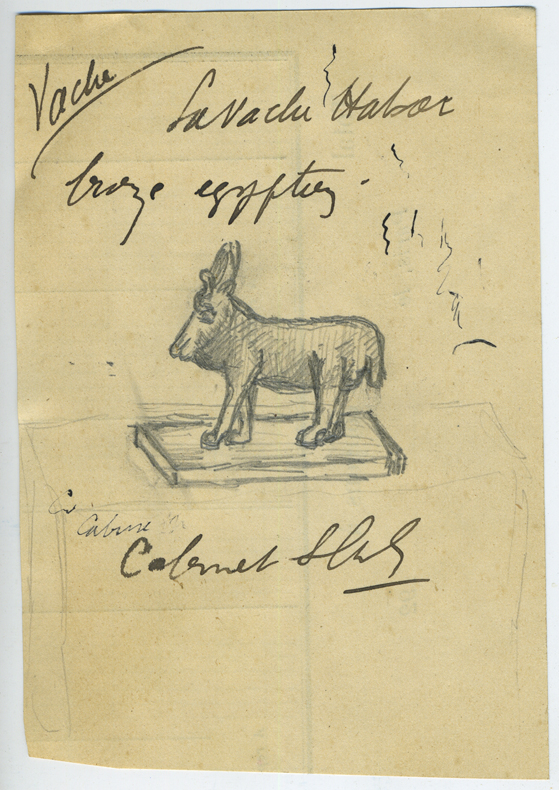 Vache
La Vache Hator
bronze egyptien
Cabine
Cabinet